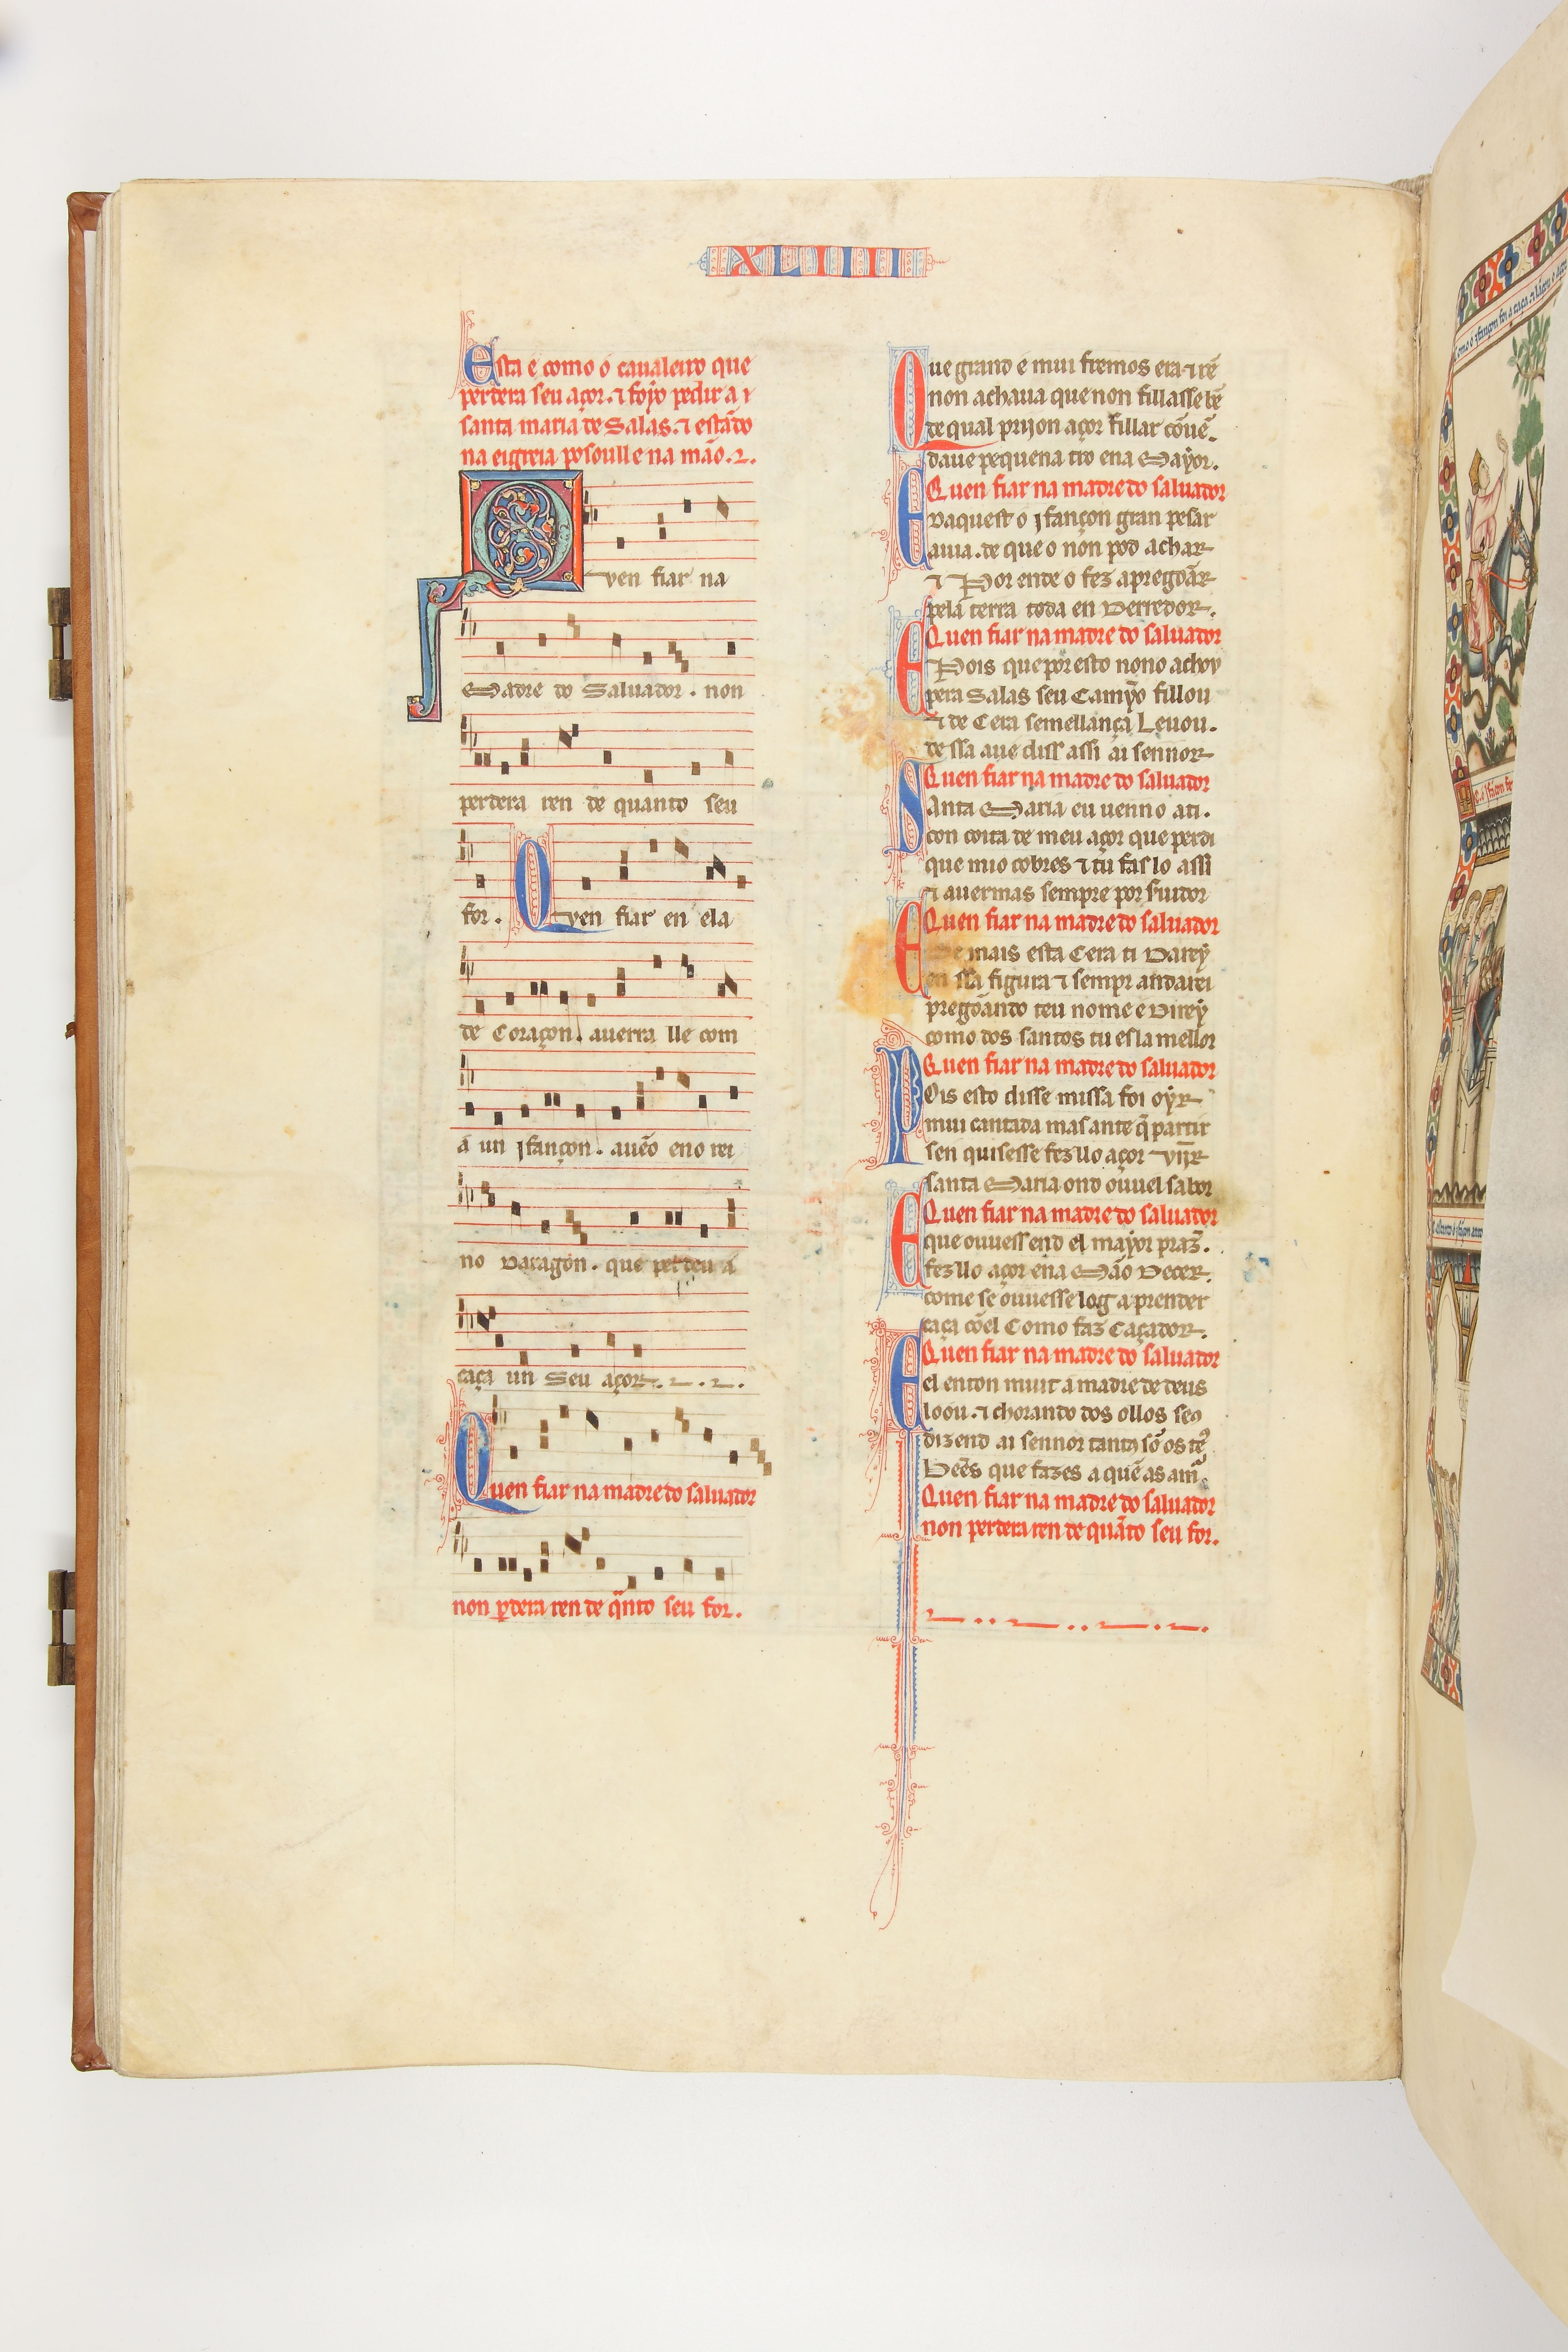 XLIIII
Esta é como o cavaleiro que
perdera seu açor. ⁊ foyo pedir a
santa maria de Salas. ⁊ estãdo
na eigreia posoulle na mão.
Quen fiar na
Madre do Saluador. non
perdera ren de quanto seu
for. Quen fiar en ela
de Coraçon. auerra lle com
a un jfançon. auẽo eno rei
no Daragon. que perdeu a
caça un Seu açor.
Quen fiar na madre do saluador
non ꝑdera ren de qͣnto seu for.
Que grand e mui fremos era ⁊ rẽ
non achaua que non fillasse bẽ
de qual prijon açor fillar cõuẽ.
daue pequena tro ena Mayor.
Quen fiar na madre do saluador
E daquest o jfançon gran pesar
auia. de que o non pod achar
⁊ Por ende o fez apregõar
pela terra toda en Derredor.
Quen fiar na madre do saluador
E Pois que por esto nono achoy
pera Salas seu Camỹo fillou
⁊ de Cera semellança Leuou.
de ssa aue diss assi ai sennor
Quen fiar na madre do saluador
Santa Maria eu uenno a ti.
con coita de meu açor que perdi
que mio cobres ⁊ tu fas lo assi
⁊ auermas sempre por seruidor
Quen fiar na madre do saluador
E De mais esta Cera ti Darey
en ssa figura ⁊ sempr andarei
pregõando teu nome e Direy
como dos santos tu es la mellor
Quen fiar na madre do saluador
Pois esto disse missa foi oyr
mui cantada mas ante q̃ partir
sen quisesse fez llo açor vĩjr
santa Maria ond ouuel sabor
Quen fiar na madre do saluador
E que ouuess end el mayor praz.
fez llo açor ena Mão Decer.
come se ouuesse log a prender
caça cõel Como faz Caçador.
Quen fiar na madre do saluador
E el enton muit a madre de deus
loou. ⁊ chorando dos ollos seꝯ
dizend ai sennor tantꝯ sõ os te
Bẽes que fazes a quẽ as am
Quen fiar na madre do saluador
non perdera ren de quãto seu for.